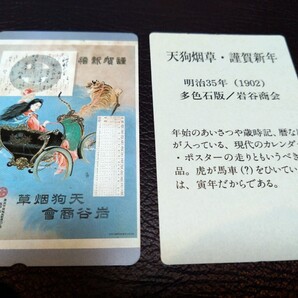 謹賀新禧
天狗烟草
岩谷商會
天狗烟草・謹賀新年
明治35年（1902）
多色石版／岩谷商会
年始のあいさつや歳時記、暦な
が入っている、現代のカレンダー
・ポスターの走りともいうべき
品。虎が馬車（？）をひいてい
は、寅年だからである。